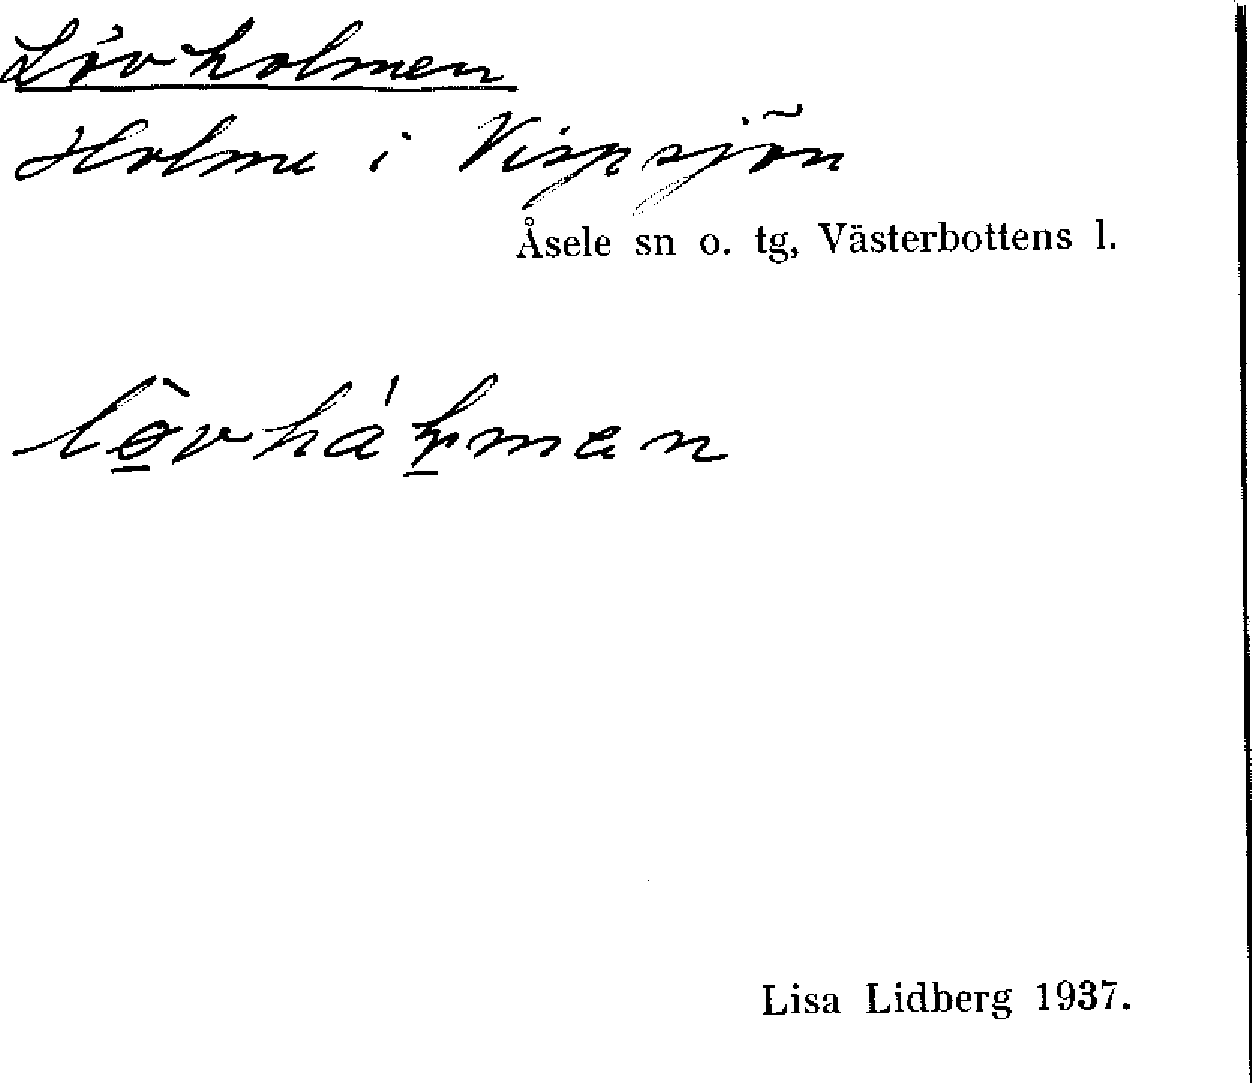 Lövholmen
Holme i Vispsjön
Åsele sn o. tg, Västerbottens l.
Lisa Lidberg 1937.